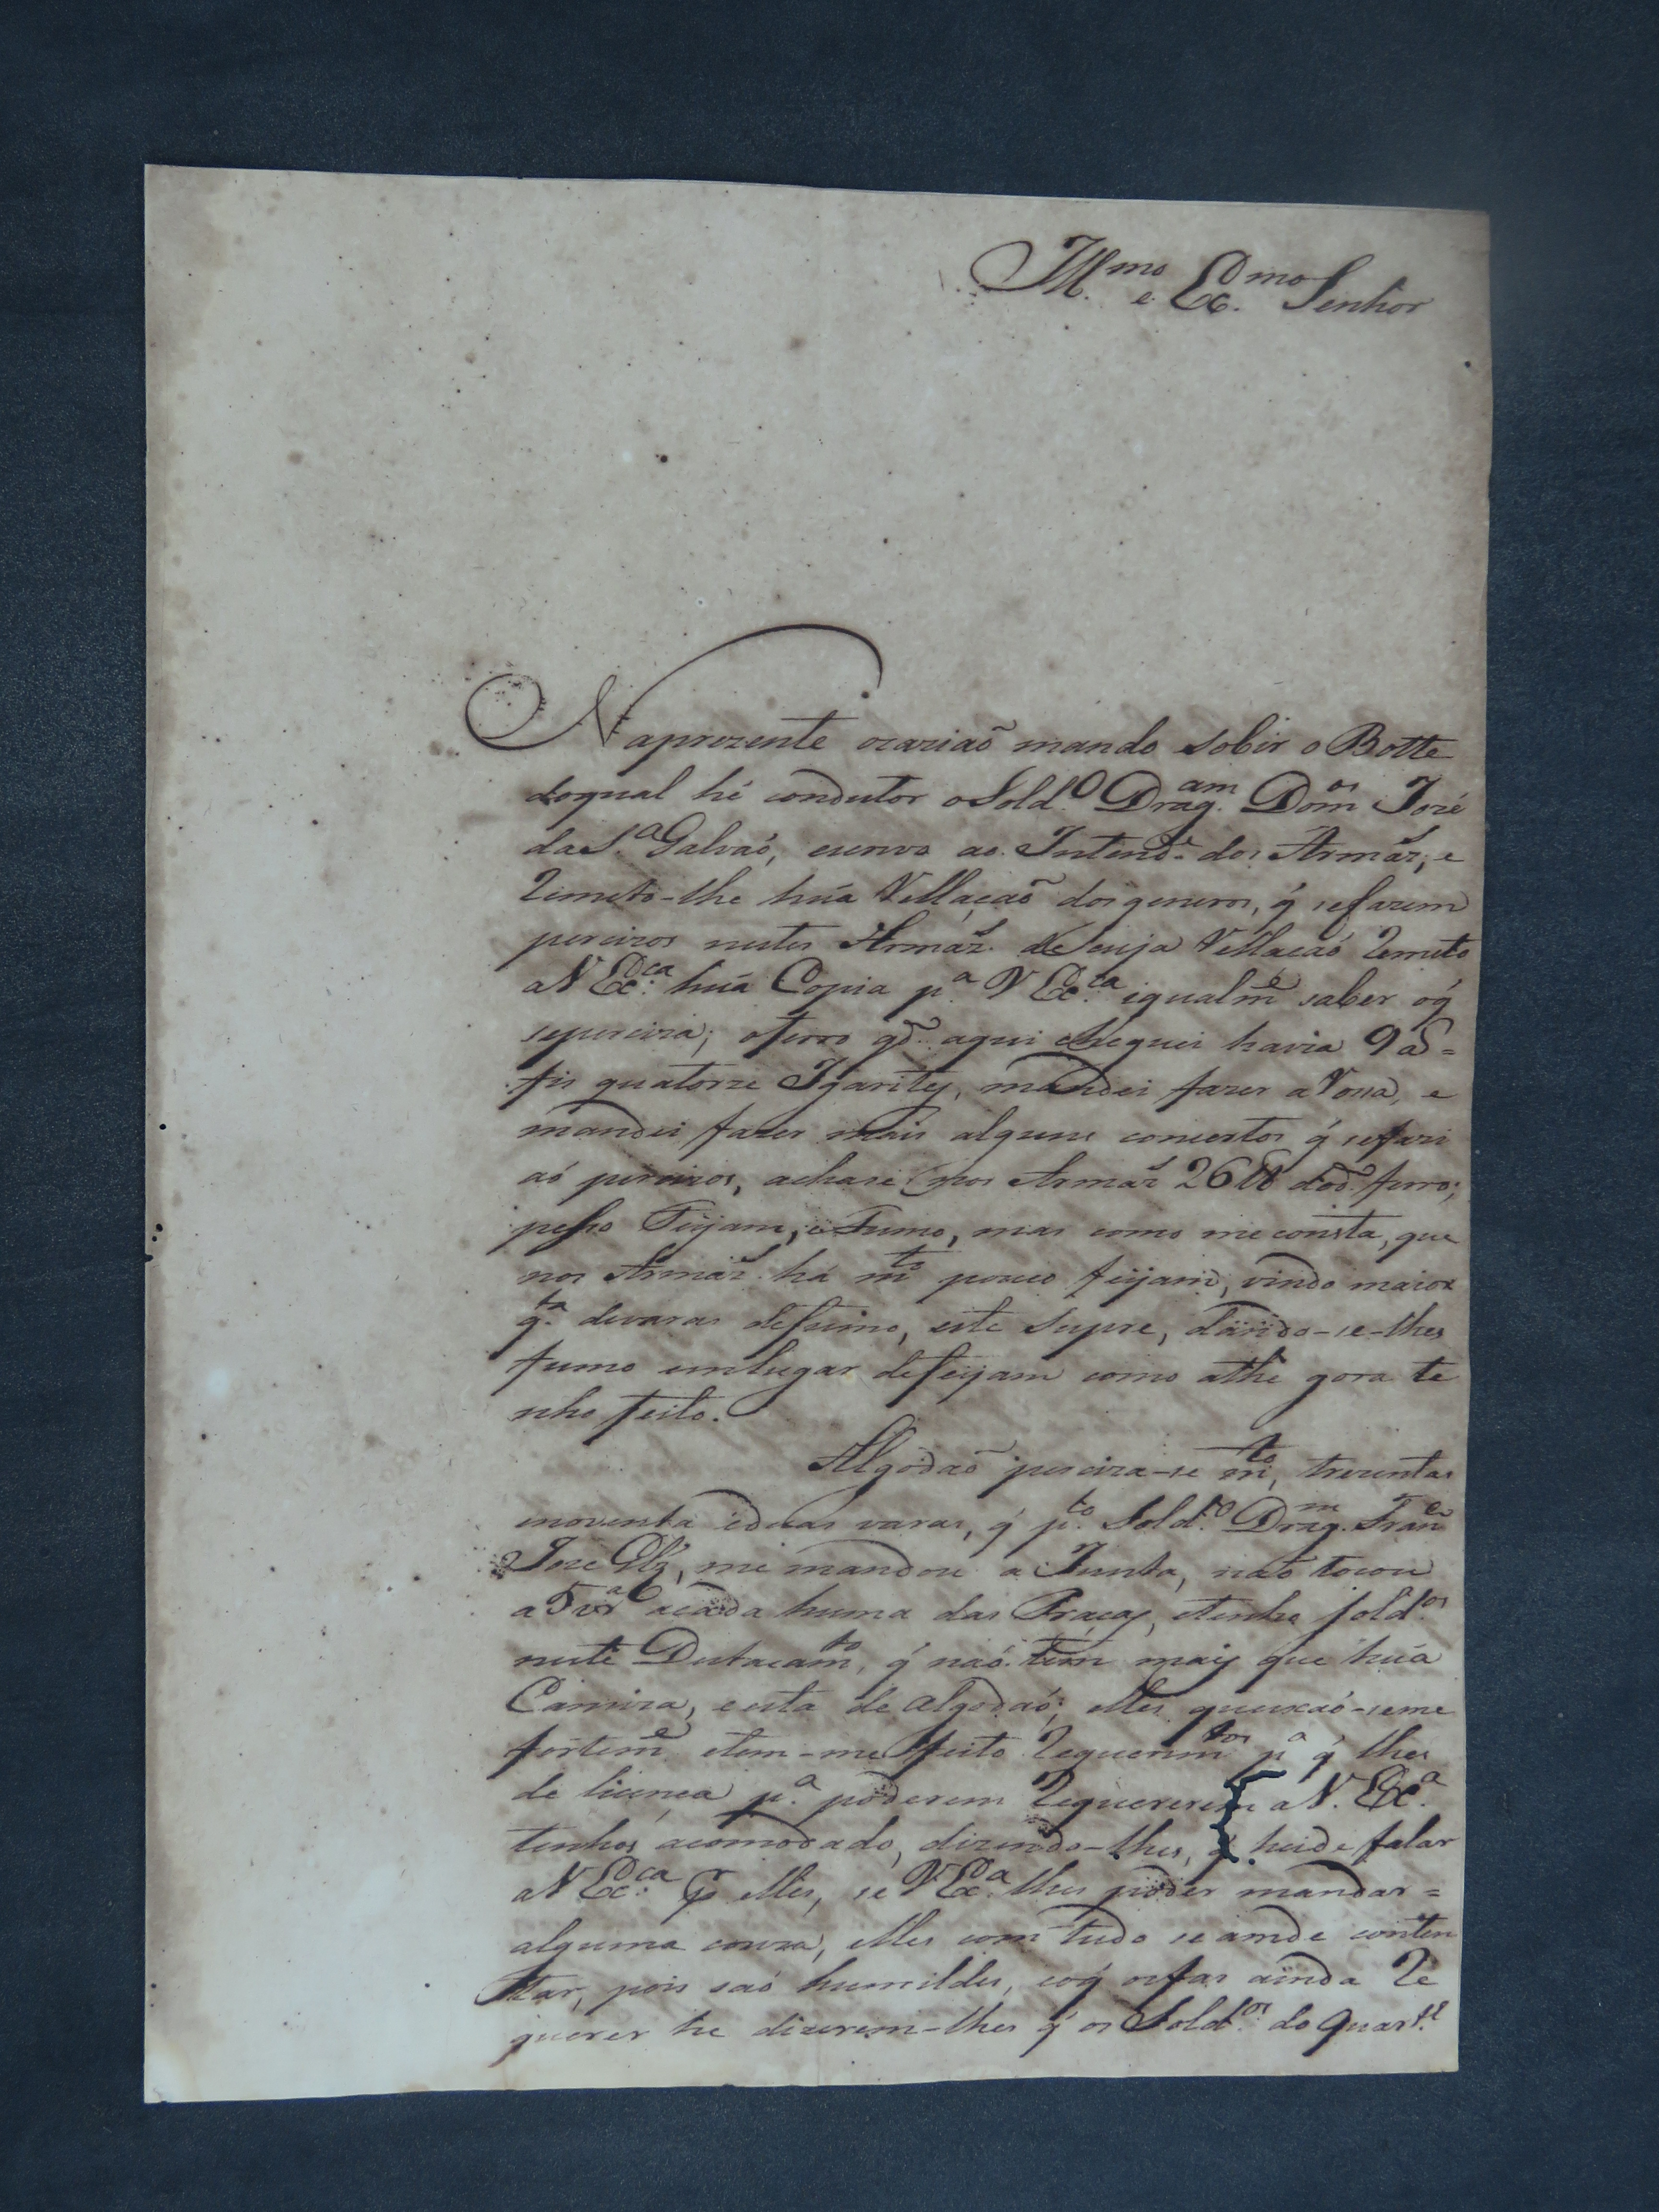 Ill.mo e Ex.mo Senhor
Naprezente ocaziaõ mando sobir o Botte
doqual hé condutor oSold.o Drag.am Dom.os Jozé
daS.a Galvaõ, escrevo ao Intend.e dos Armaz.s, e
Remeto-lhe húa Rellaçaõ dos generos, q̃ sefazem
percizos nestes Armaz.s de cuja Rellacaõ Remeto
aV Ex.ca húa Copia p.a V Ex.ca igualm.e saber oq̃
sepereciza; oferro qd.o aqui cheguei havia
fis quatorze Igaritéz, mandei fazer aRossa, e
mandei fazer mais alguns concertos q̃ sefazi
aõ percizos, achase nos Armaz.s 26 lb dod.o ferro;
pesso Feijam, e Fumo, mas como me consta, que
nos Armaz.s há m.to pouco feijam, vindo maior
q.ta devaras defumo, este supre, dando-se-lhes
fumo emlugar defeijam como athe gora te
nho feito.
Algodaõ perciza-se m.to, trezentas
enoventa eduas varas, q̃ p.lo Sold.o Drag.m Fran.co
Joze Glz, me mandou a Junta, naõ tocou
a5 v.as acada huma das Praças, etenho sold.os
neste Destacam.to, q̃ naõ tem mais que húa
Camiza, e esta de algodaõ; elles queixaõ-seme
fortem.e etem-me feito Requerim.tos p.a q̃ lhes
de licença p.a poderem Requererem aV. Ex.a
tenhos acomodado, dizendo-lhes, q̃ heide falar
aV Ex.ca por elles, se V Ex.a lhes poder mandar=
alguma couza, elles com tudo se amde conten
tar, pois saõ humildes, eoq̃ osfas ainda Re
querer he dizerem-lhes q̃ os Sold.os do Quart.el